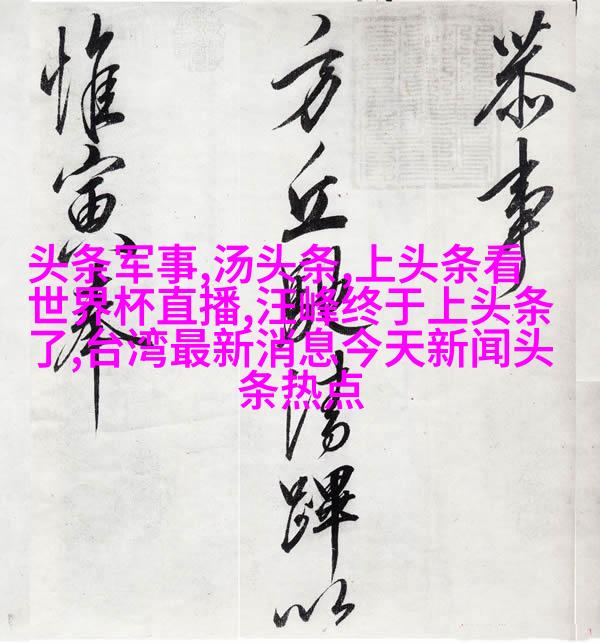 恭事
方丘清蹕以
惟寅奉
头条军事,汤头条,上头条看
世界杯直播,汪峰终于上头条
了,台湾最新消息今天新闻头
条热点